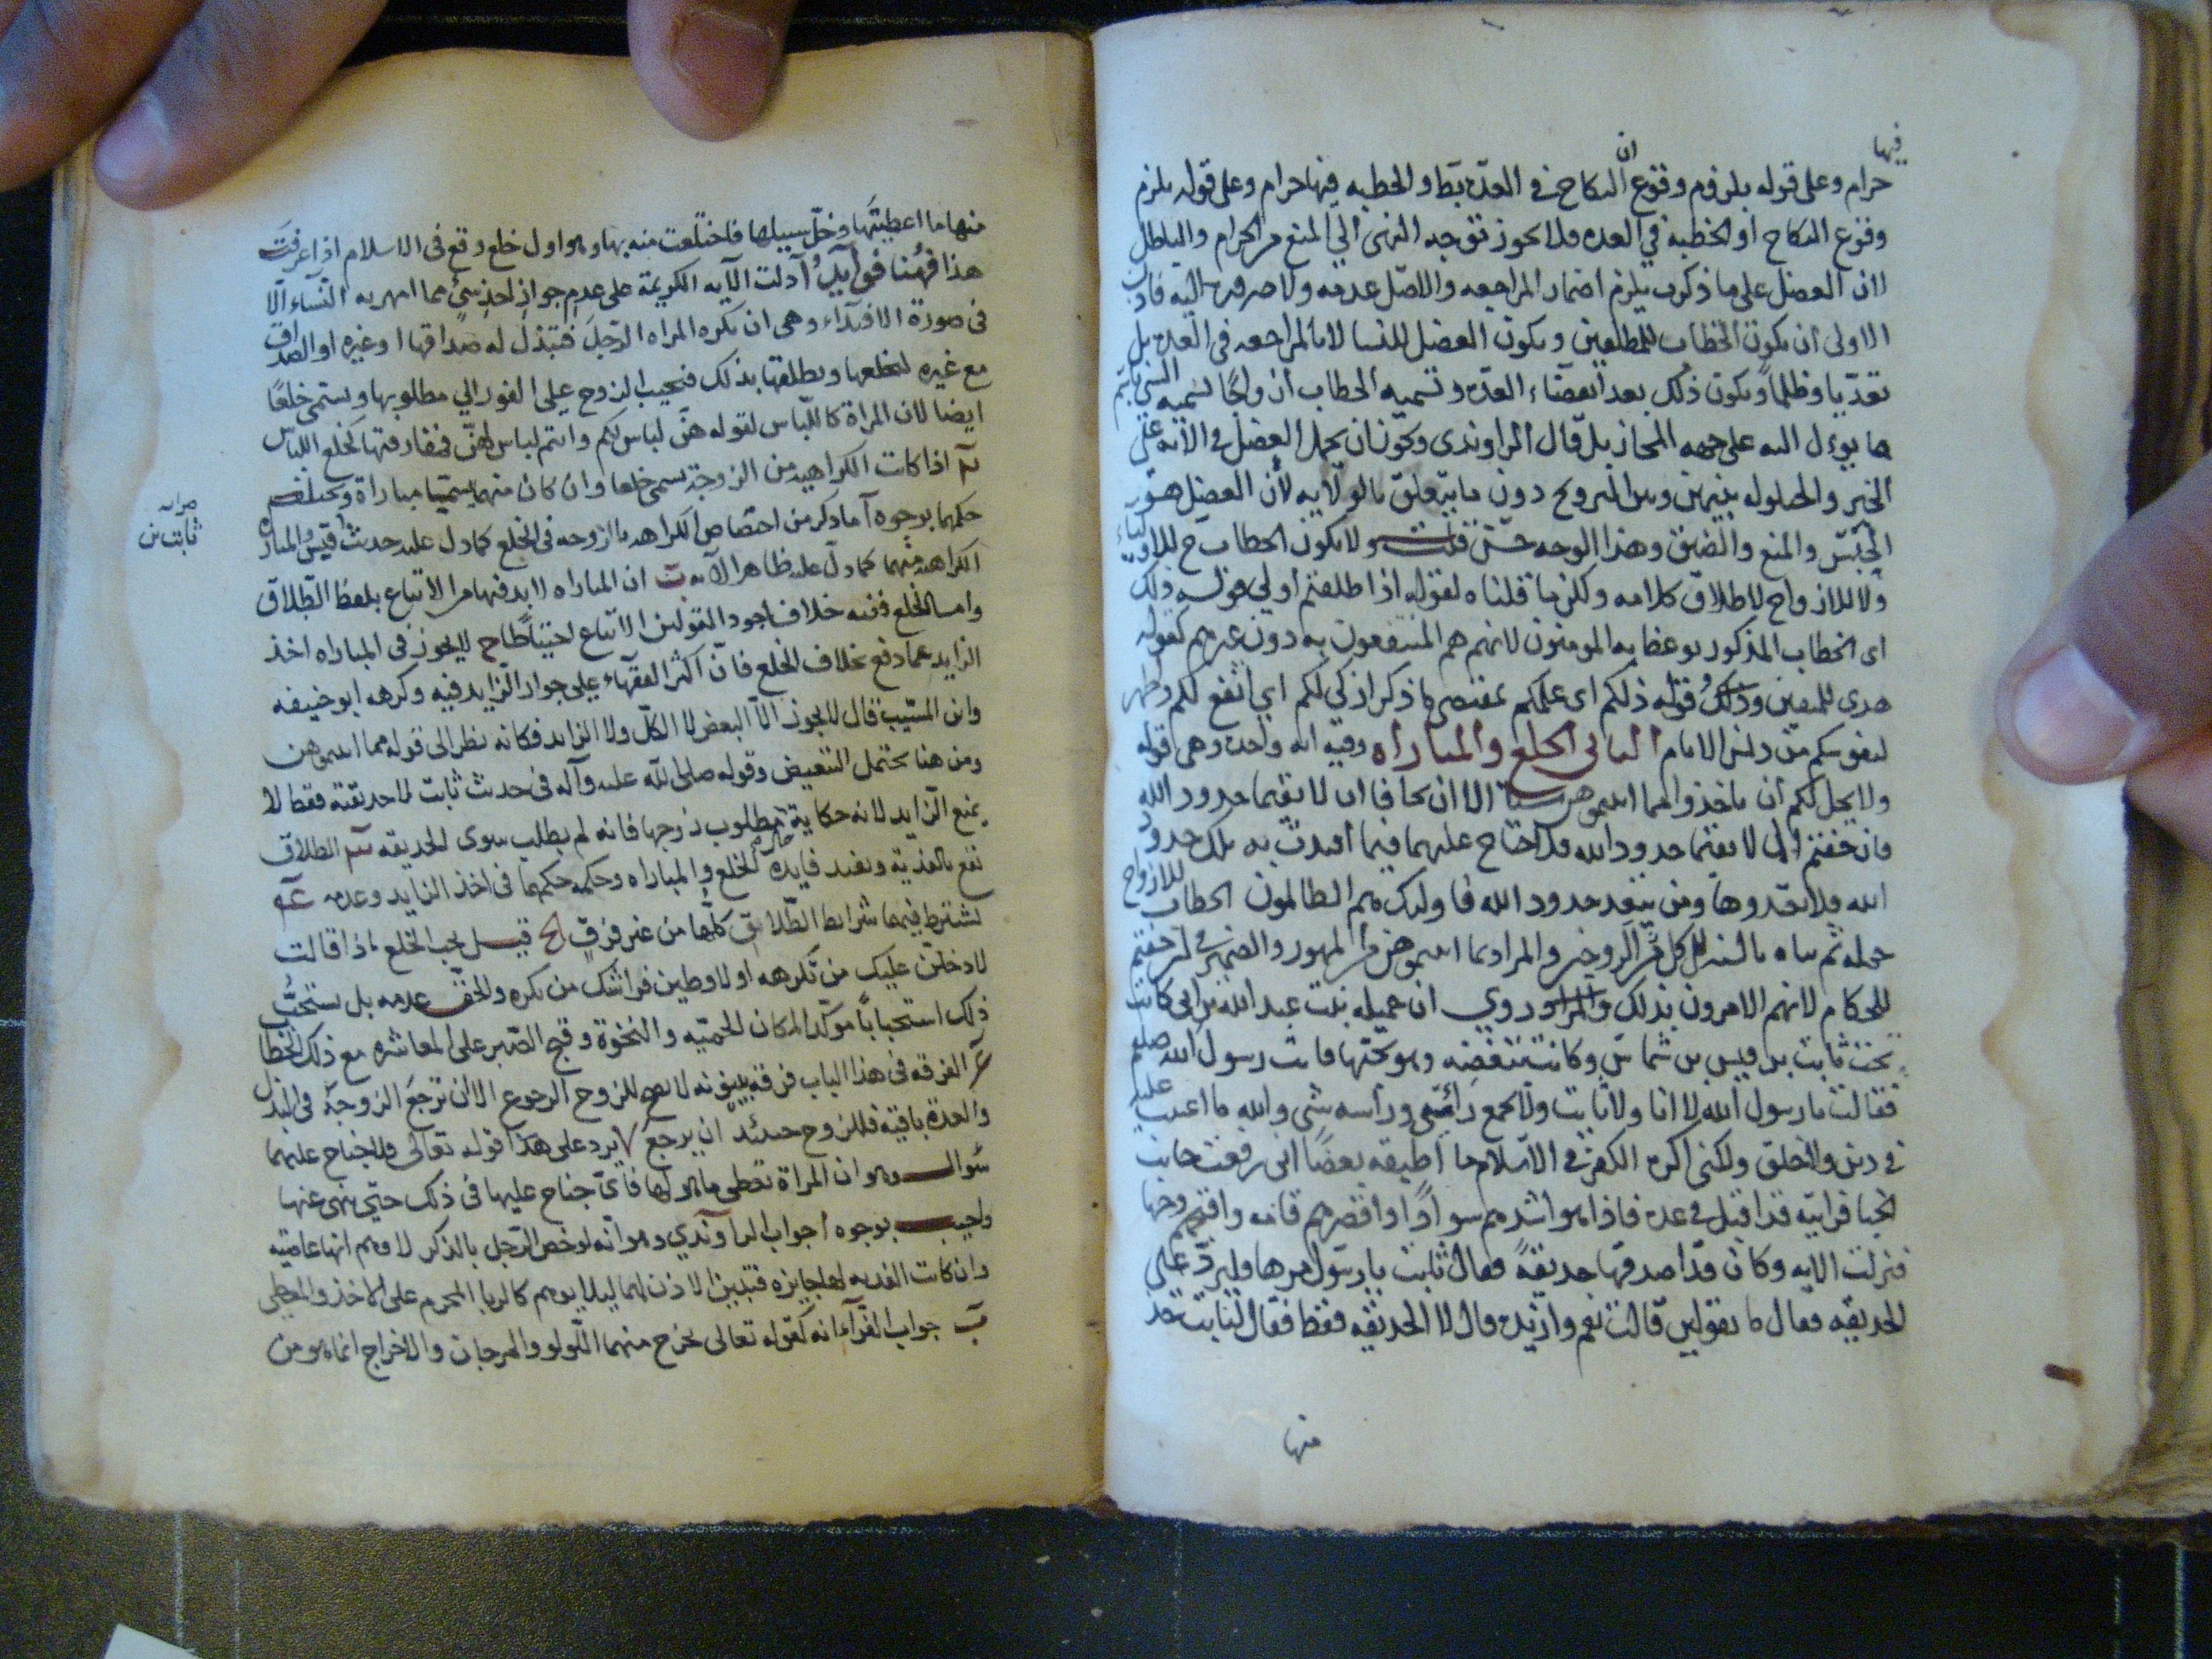 فيها
ان
حرام وعلى قوله يلزم وقوع النكاح في العدة بط والخطبه فيها حرام وعلى قوله يلزم
وقوع النكاح او الخطبه في العده فلا يجوز توجه النهى الي المنع من الحرام والباطل
لان العضل على ما ذكره يلزم اضمار المراجعه والاصل عدمه ولا ضروره اليه فاذن
الاولى ان يكون الخطاب للمطلقين ويكون العضل للنسا لا بالمراجعه في العده بل
تعديا وظلما ويكون ذلك بعد انقضاء العده وتسميه الخطاب ازواجا تسميه الشئ باسم
ما يؤل اليه على جهه المجاز بل قال الراوندى ويجوز ان يحمل العضل في الآية على
الخبر والحيلوله بينهن وبين التزويج دون ما يتعلق بالولايه لأن العضل هو
الحبس والمنع والضيق وهذا الوجه حسن قلت ولا يكون الخطاب ح للاولياء
ولا للازواج لاطلاق كلامه ولكن ما قلناه لقوله اذا طلقتم أولي قوله ذلك
اى الخطاب المذكور يوعظ به المومنون لانهم هم المنتفعون به دون غيرهم كقوله
هدى للمتقين وذلك قوله ذلكم اى عملكم بمقتضى ما ذكر ازكى لكم اي انفع لكم واطهر
لنفوسكم من دنس الاثام الثانى الخلع والمباراه وفيه ايه واحده وهى قوله
ولا يحل لكم أن تاخذوا مما اتيتموهن شيئا الا ان يخافا ان لا يقيما حدود الله
فان خفتم ألا يقيما حدود الله فلا جناح عليهما فيما افتدت به تلك حدود
الله فلا تعتدوها ومن يتعد حدود الله فاولئك هم الظالمون الخطاب للازواج
جمله ثم ثناه بالنسبه لكل من الزوجين والمراد بما اتيتموهن من المهور والضمير في خفتم
للحكام لانهم الامرون بذلك وروي ان جميله بنت عبد الله بن ابى كانت
تحت ثابت بن قيس بن شماس وكانت تبغضه وهو يحبها فاتت رسول الله صلعم
فقالت يا رسول الله لا انا ولا ثابت ولا يجمع رأسى ورأسه شى والله ما اعيب عليه
فى دين ولا خلق ولكنى اكره الكفر فى الاسلام ما اطيقه بغضا انى رفعت جانب
الخبا فرايته قد اقبل فى عده فاذا هو اشدهم سوادا واقصرهم قامه واقبحهم وجها
فنزلت الايه وكان قد اصدقها حديقة فقال ثابت يا رسول الله مرها فليرد على
الحديقه فقال ما تقولين قالت نعم وازيده قال لا الحديقه فقط فقال لثابت خذ
منها
منها ما اعطيتها وخل سبيلها فاختلعت منه بها وهو اول خلع وقع فى الاسلام اذا عرفت
هذا فهنا فوايد آ دلت الآيه الكريمة على عدم جواز اخذ شئ مما امهر به النساء الا
فى صورة الافتداء وهى ان تكره المراه الرجل فتبذل له صداقها او غيره او الصداق
مع غيره ليخلعها ويطلقها بذلك فيجيب الزوج على الفور الي مطلوبها ويسمى خلعا
ايضا لان المراة كاللباس لقوله هن لباس لكم وانتم لباس لهن فمفارقتها كخلع اللباس
ب اذا كانت الكراهيه من الزوجة يسمى خلعا وان كان منهما يسمى مباراة ويختلف
حكمهما بوجوه آ ما ذكر من اختصاص الكراهه بالزوجه فى الخلع كما دل عليه حديث قيس والمباراه
امراه
ثابت بن
الكراهه منهما كما دل عليه ظاهر الايه ب ان المباراه لابد فيها من الاتباع بلفظ الطلاق
واما الخلع ففيه خلاف اجود القولين الاتباع احتياطا ج لا يجوز فى المباراه اخذ
الزايد عما دفع بخلاف الخلع فان اكثر الفقهاء على جواز الزايد فيه وكرهه ابو حنيفه
وابن المسيب قال لا يجوز الا البعض لا الكل ولا الزايد فكانه نظر الى قوله مما اتيتموهن
ومن هنا يحتمل التبعيض وقوله صلى الله عليه وآله فى حديث ثابت لا حديقته فقط لا
يمنع الزايد لانه حكاية مطلوب زوجها فانه لم يطلب سوى الحديقه الطلاق
يقع بالفدية ويفيد فايده الخلع والمباراه وحكمه حكمهما فى اخذ الزايد وعدمه
يشترط فيهما شرايط الطلاق كلها من غير فرق قيل يجب الخلع اذا قالت
لادخلن عليك من تكرهه او لاوطين فراشك من تكره والحق عدمه بل يستحب
ذلك استحبابا موكدا لمكان الحميه والنخوة وقبح الصبر على المعاشره مع ذلك الخطا
الفرقه فى هذا الباب فرقه بينونه لا يصح للزوج الرجوع الا ان ترجع الزوجة فى البذل
والعدة باقية فللزوج حينئذ ان يرجع يرد على هذا قوله تعالى فلا جناح عليهما
سوال وهو ان المراة تعطى ما هو لها فاى جناح عليها فى ذلك حتى نهى عنها
واجيب بوجوه ا جواب الراوندي وهو انه لو خص الرجل بالذكر لاوهم انها عاصيه
وان كانت الفديه لها جايزه فتبين الاذن لهما ليلا يوهم كالربا المحرم على الاخذ والمعطى
ب جواب الفراء انه كقوله تعالى يخرج منهما اللولو والمرجان والاخراج انما هو من